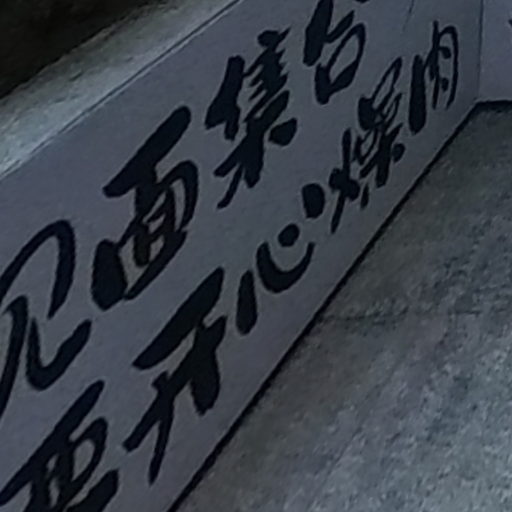 见面集合
要开心爆肉